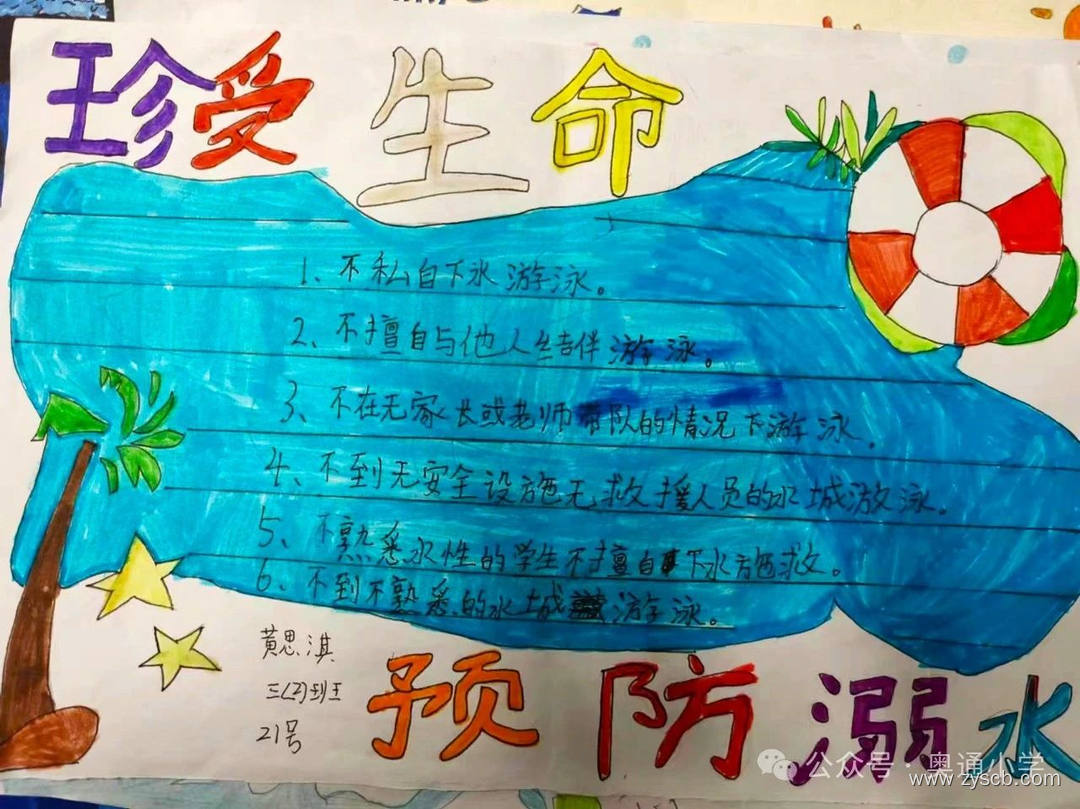 珍受生命
1、不私自下水游泳。
2、不擅自与他人结伴游泳。
3、不在无家长或老师带队的情况下游泳。
4、不到无安全设施无救援人员的水城游泳。
5、不熟悉水性的学生不擅自下水施救。
6、不到不熟悉的水城游泳。
黄思淇
三(2)班
21号
预防溺水
公众号·奥通小学
www.zyscb.com